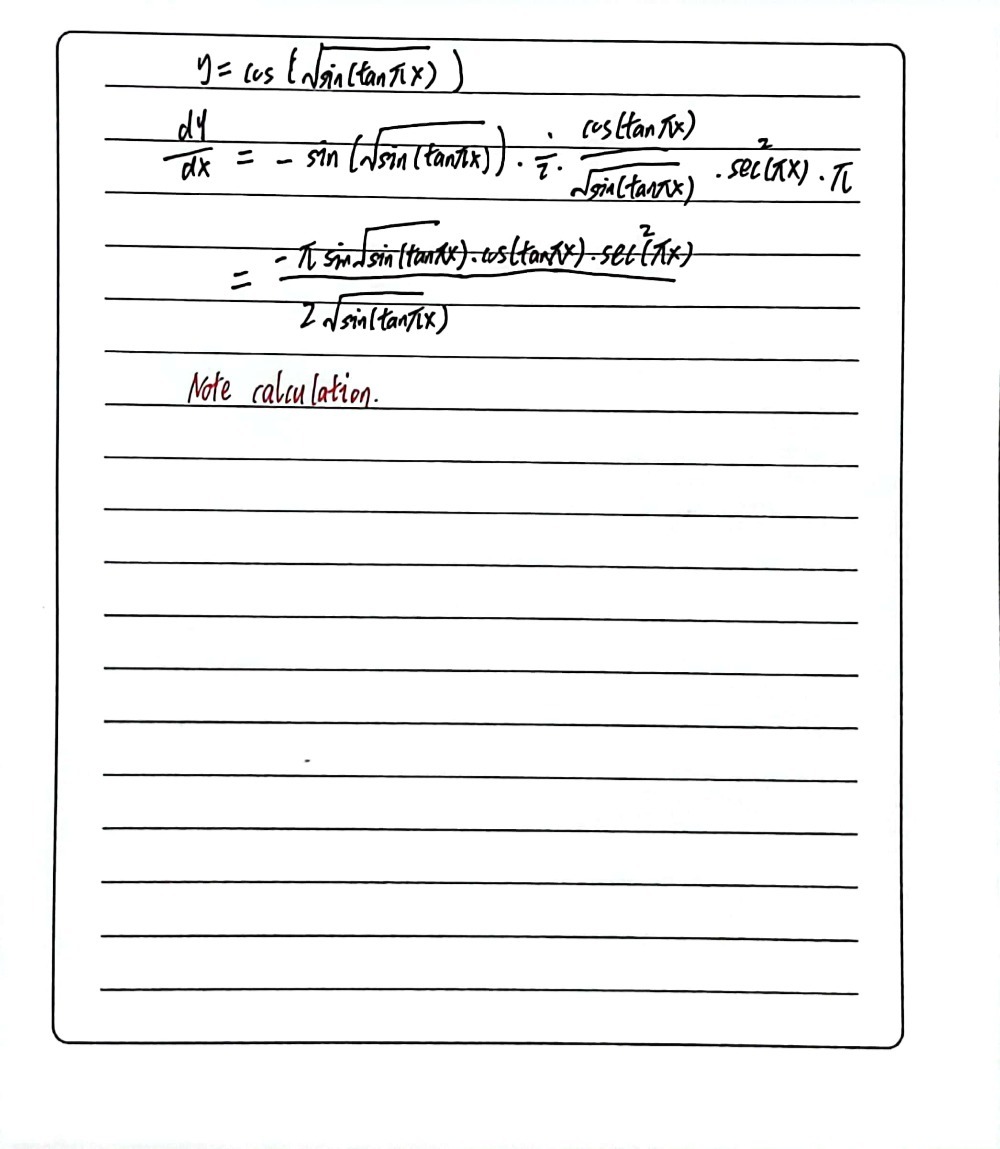 y = cos (√sin(tanπx))
dy/dx = - sin (√sin(tanπx)) · 1/2 · cos(tanπx)/√sin(tanπx) · sec²(πx) · π
= -π sin√sin(tanπx) · cos(tanπx) · sec²(πx) / 2√sin(tanπx)
Note calculation.